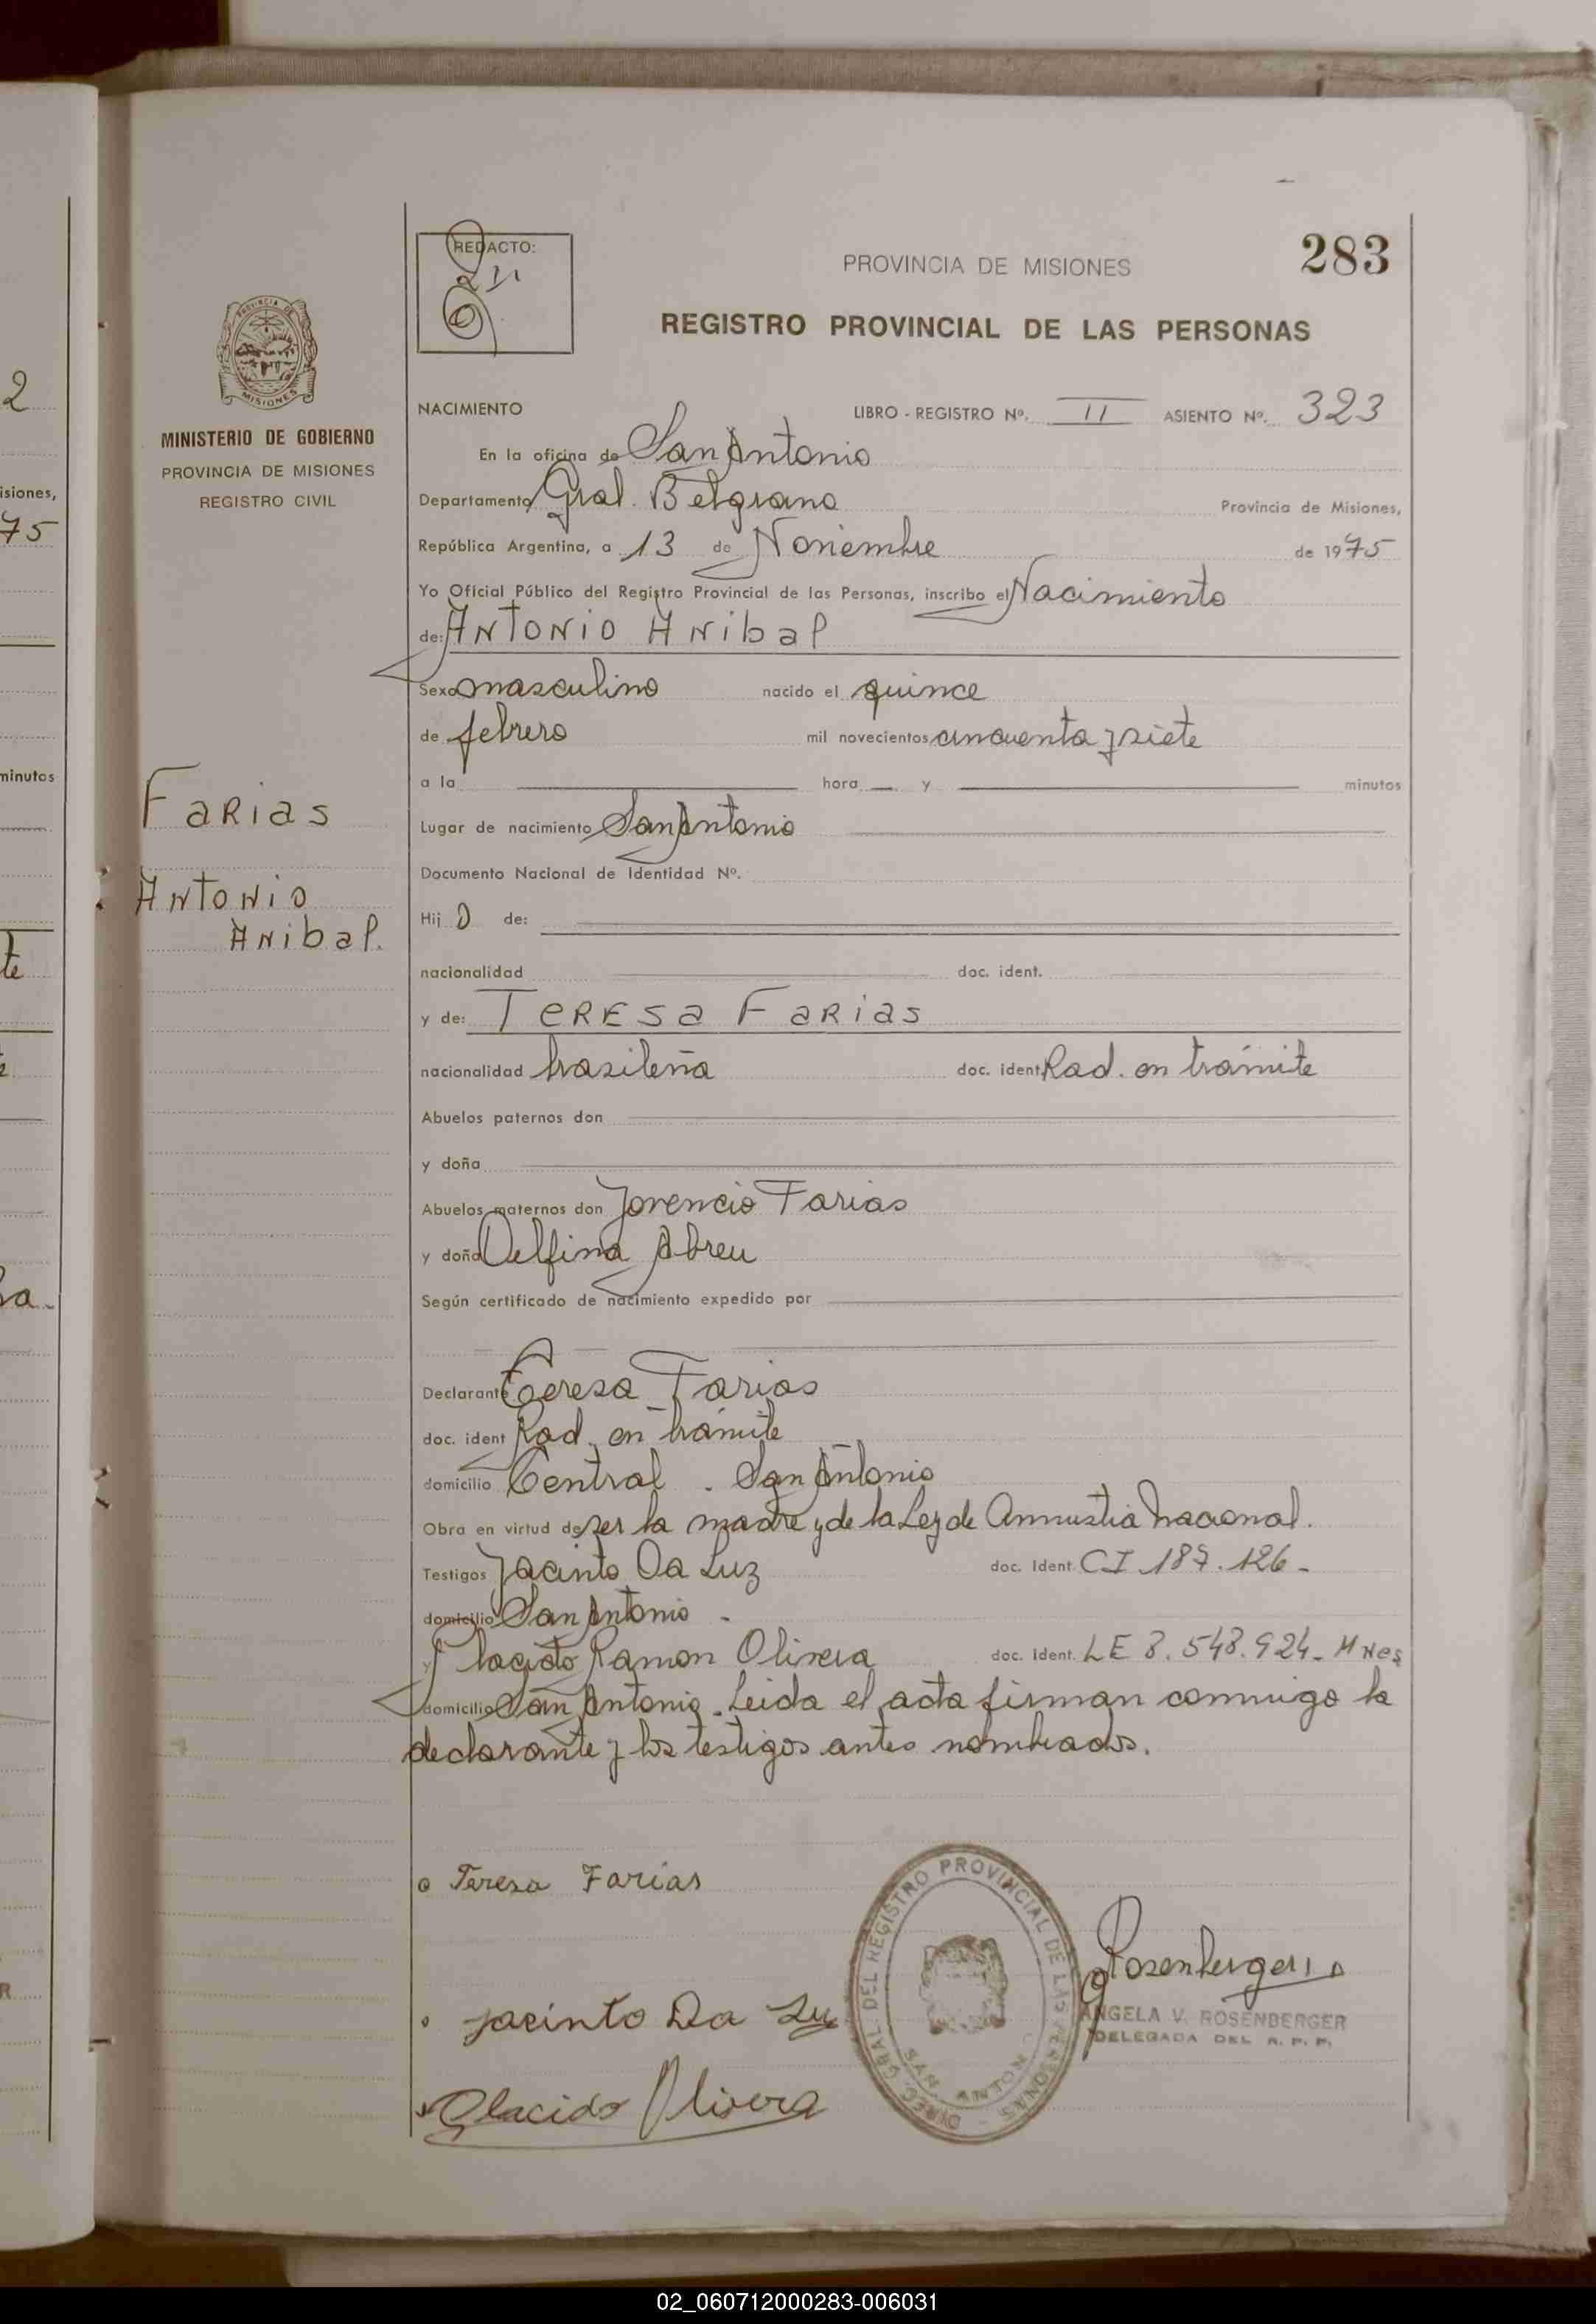 2
isiones,
75
minutos
te
ra.
R
REDACTO:
PROVINCIA DE MISIONES
283
REGISTRO PROVINCIAL DE LAS PERSONAS
PROVINCIA DE
MISIONES
MINISTERIO DE GOBIERNO
PROVINCIA DE MISIONES
REGISTRO CIVIL
Farias
Antonio
Anibal.
NACIMIENTO LIBRO - REGISTRO Nº. II ASIENTO Nº. 323
En la oficina de San Antonio
Departamento Gral. Belgrano Provincia de Misiones,
República Argentina, a 13 de Noviembre de 1975
Yo Oficial Público del Registro Provincial de las Personas, inscribo el Nacimiento
de: Antonio Anibal
Sexo masculino nacido el quince
de febrero mil novecientos cincuenta y siete
a la hora y minutos
Lugar de nacimiento San Antonio
Documento Nacional de Identidad Nº.
Hijo de:
nacionalidad doc. ident.
y de: Teresa Farias
nacionalidad brasileña doc. ident. Rad. en trámite
Abuelos paternos don
y doña
Abuelos maternos don Jovencio Farias
y doña Delfina Abreu
Según certificado de nacimiento expedido por
Declarante Teresa Farias
doc. ident Rad. en trámite
domicilio Central . San Antonio
Obra en virtud de ser la madre y de la Ley de Amnistia Nacional.
Testigos Jacinto Da Luz doc. Ident. CI 187.126-
domicilio San Antonio -
y Placido Ramon Olivera doc. Ident. LE 8.548.924- Mnes
domicilio San Antonio. Leida el acta firman conmigo la
declarante y los testigos antes nombrados.
Teresa Farias
Jacinto Da Luz
Placido Olivera
DIREC. GRAL. DEL REGISTRO PROVINCIAL DE LAS PERSONAS -
SAN ANTONIO
Rosenberger
ANGELA V. ROSENBERGER
DELEGADA DEL R. P. P.
02_060712000283-006031